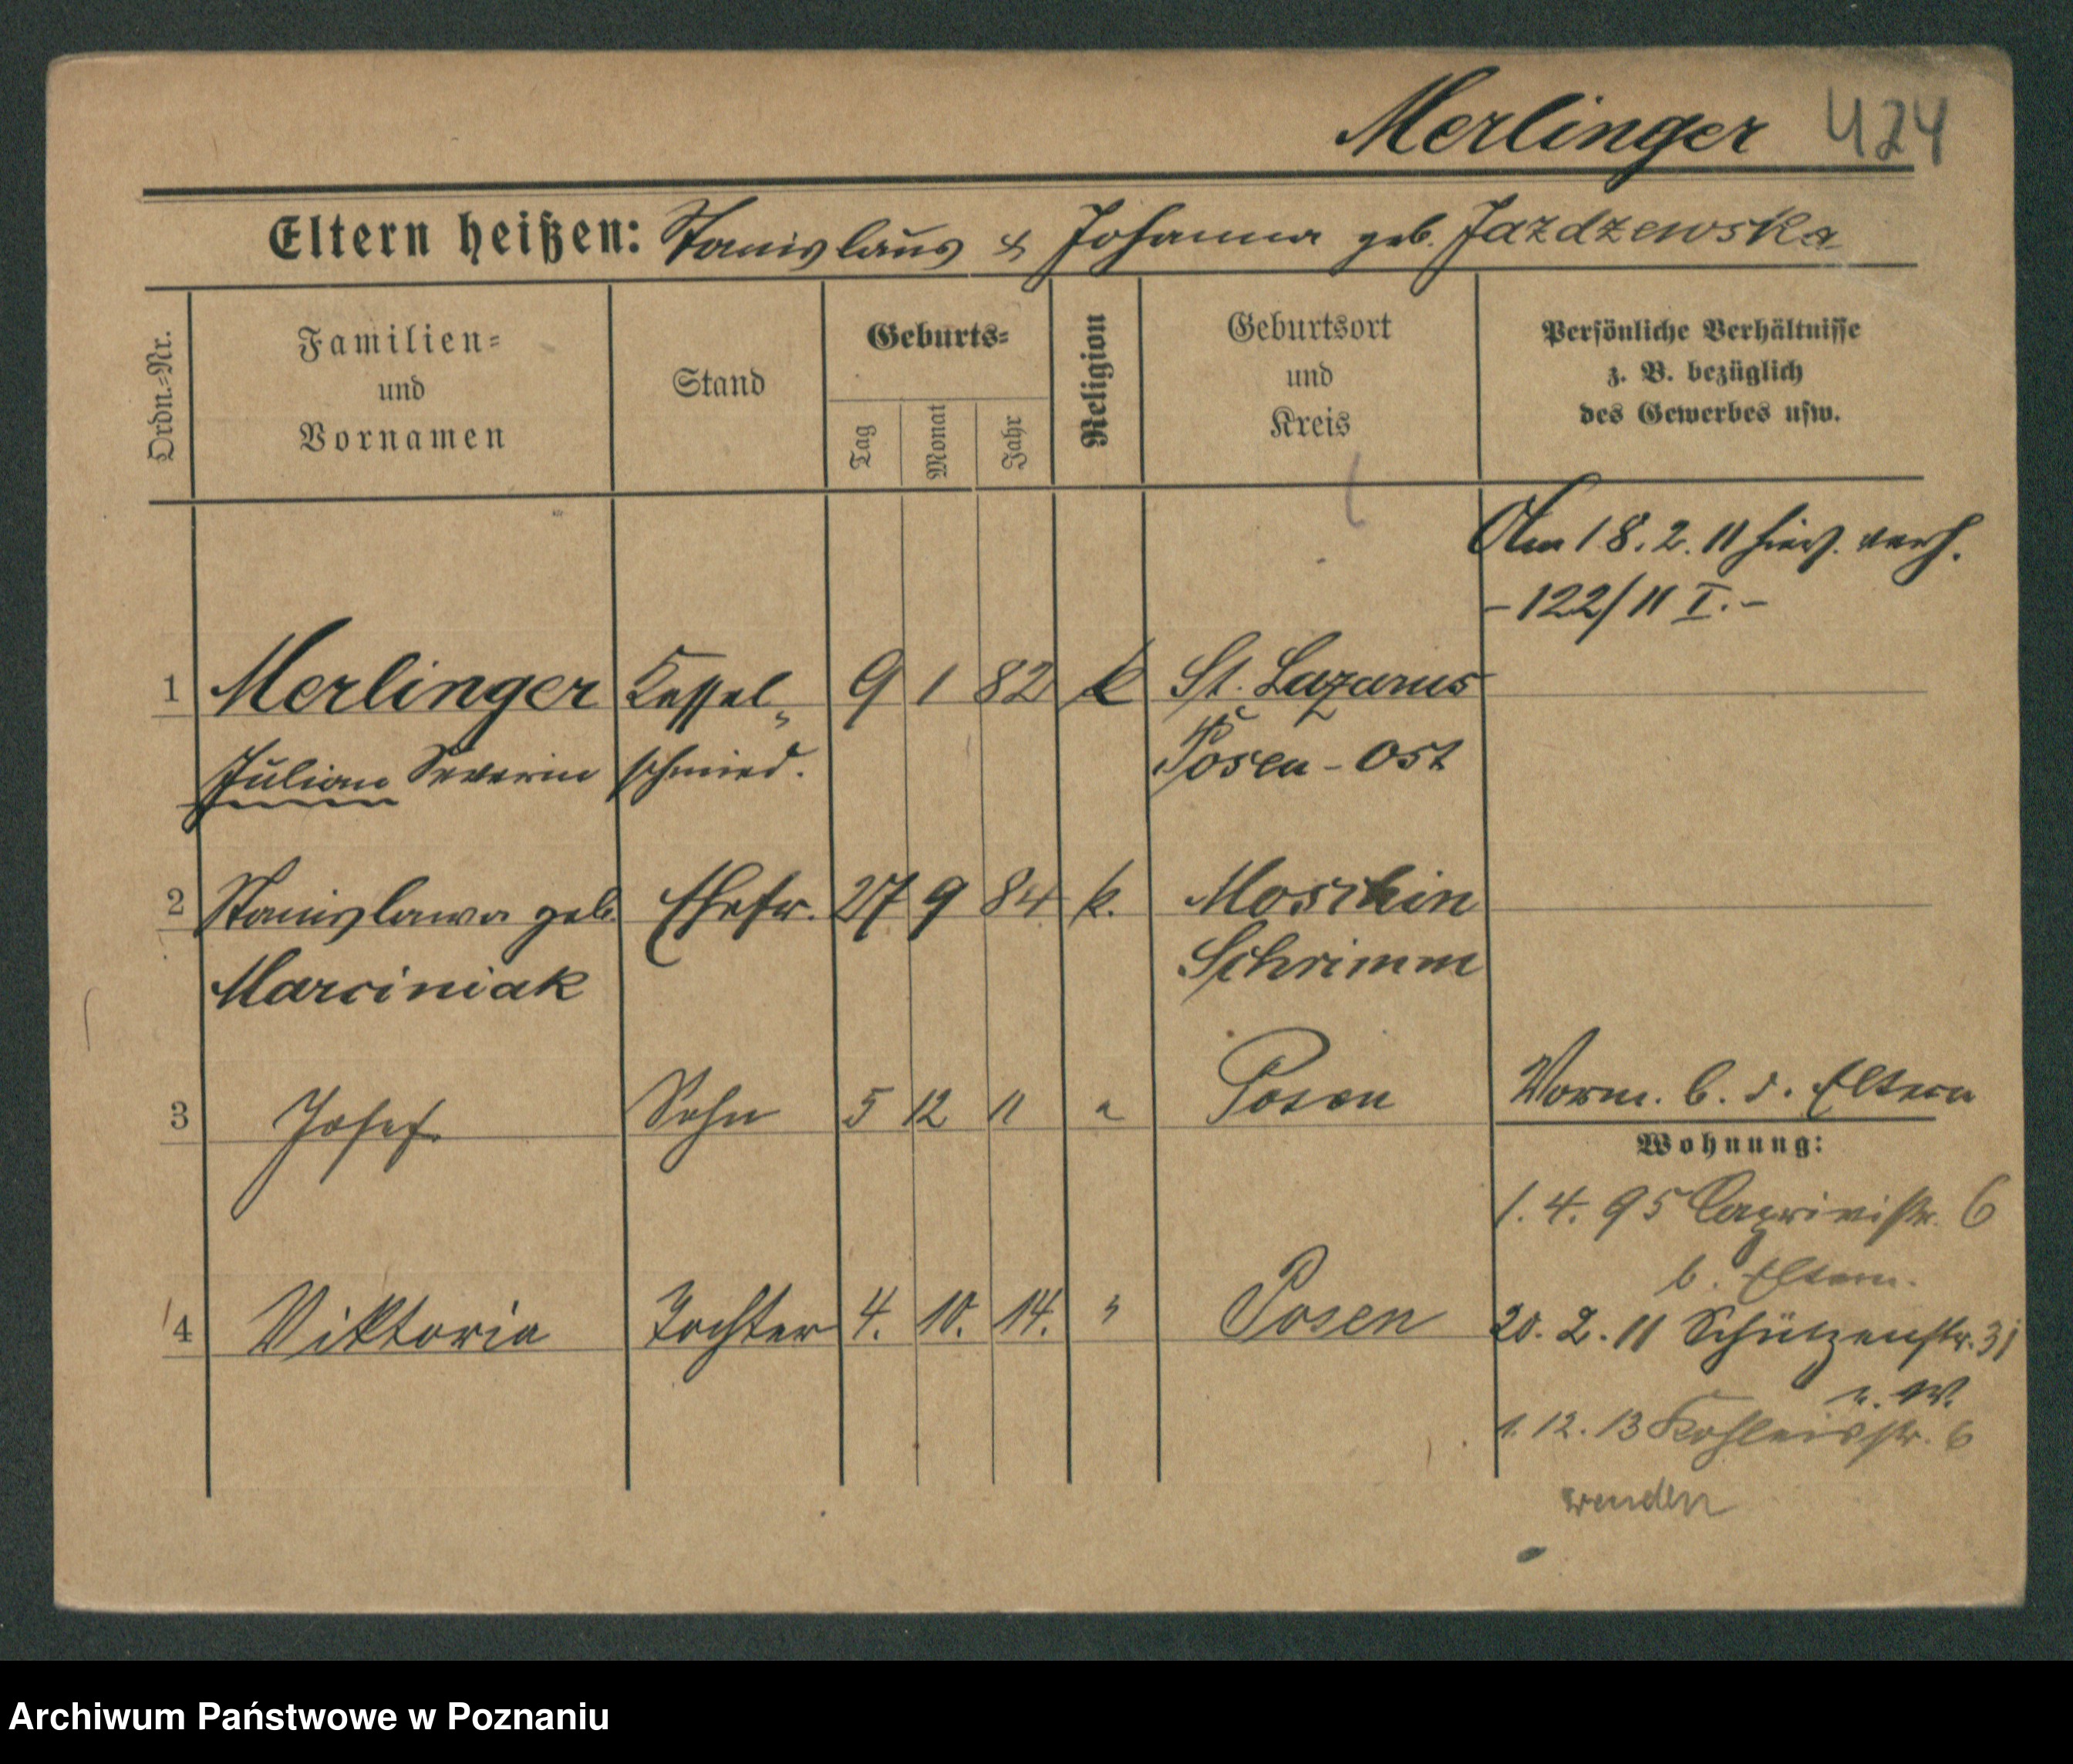 Merlinger 424
Eltern heißen: Stanislaus & Johanna geb. Jazdzewska
Ordn.-Nr.
Familien-
und
Vornamen
Stand
Geburts-
Tag
Monat
Jahr
Religion
Geburtsort
und
Kreis
Persönliche Verhältnisse
z. B. bezüglich
des Gewerbes usw.
Am 18.2.11 hies. verh.
- 122/11 I. -
1 Merlinger Kessel- 9 1 82 k St. Lazarus
Julian Severin schmied. Posen-Ost
2 Stanislawa geb. Ehefr. 27 9 84 k. Moschin
Marciniak Schrimm
3 Josef Sohn 5 12 11 " Posen Vorm. b. d. Eltern
Wohnung:
1. 4. 95 Caprivistr. 6
b. Eltern.
4 Viktoria Tochter 4. 10. 14. " Posen 20. 2. 11 Schützenstr. 31
n. W.
1. 12. 13 Kohleisstr. 6
wenden
Archiwum Państwowe w Poznaniu